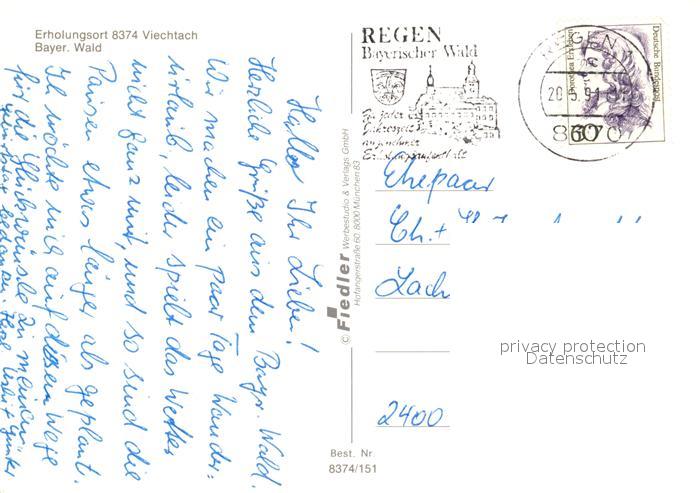 Erholungsort 8374 Viechtach
Bayer. Wald
Hallo Ihr Lieben!
Herzliche Grüße aus dem Bayr. Wald.
Wir machen ein paar Tage Wander=
urlaub, leider spielt das Wetter
nicht ganz mit, und so sind die
Pausen etwas länger als geplant.
Ich möchte mich auf diesem Wege
für die Glückwünsche zu meinem
Herzl. +
© Fiedler Werbestudio & Verlags GmbH
Hofangerstraße 60, 8000 München 83
Best. Nr.
8374/151
REGEN
Bayerischer Wald
Zu jeder
Jahreszeit
angenehmer
Erholungsaufenthalt
REGEN 1
20.5.91
8370
Dorothea Erxleben
Deutsche Bundespost
60
Ehepaar
Ch. +
Zach
2400
privacy protection
Datenschutz